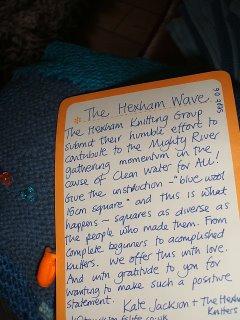 Sept 06
* The Hexham Wave
The Hexham Knitting Group
submit their humble effort to
contribute to the Mighty River
gathering momentum in the
cause of Clean water for ALL!
Give the instruction - "blue wool
15cm square" and this is what
happens - squares as diverse as
the people who made them. From
complete beginners to acomplished
knitters. We offer this with love.
And with gratitude to you for
wanting to make such a positive
statement.
Kate Jackson + The Hexham
Knitters